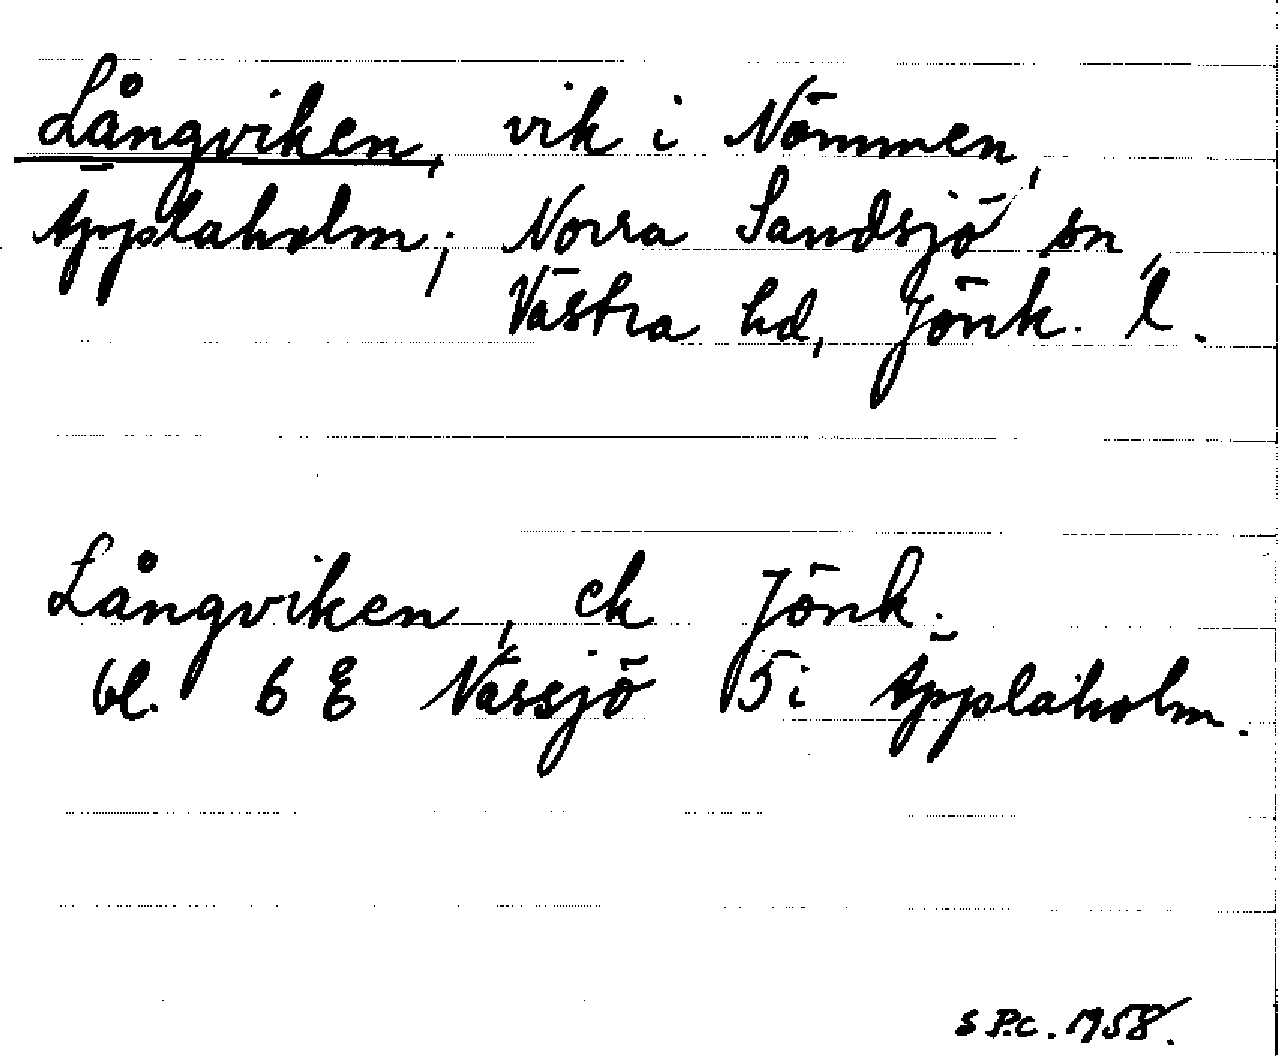 Långviken, vik i Nömmen,
Äpplaholm; Norra Sandsjö sn,
Västra hd, Jönk. l.
Långviken, ek Jönk.
bl. 6 E Nässjö 5 i Äpplaholm.
S P.C. 1958.